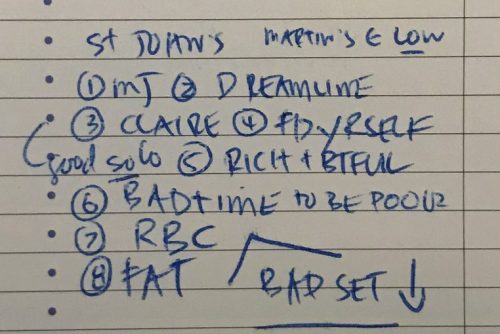 St JOHN'S MARTIN'S E LOW
① MJ ② DREAMLINE
③ CLAIRE ④ FD YRSELF
good solo ⑤ RICH + BTFUL
⑥ BAD TIME TO BE POOR
⑦ RBC
⑧ FAT BAD SET ↓